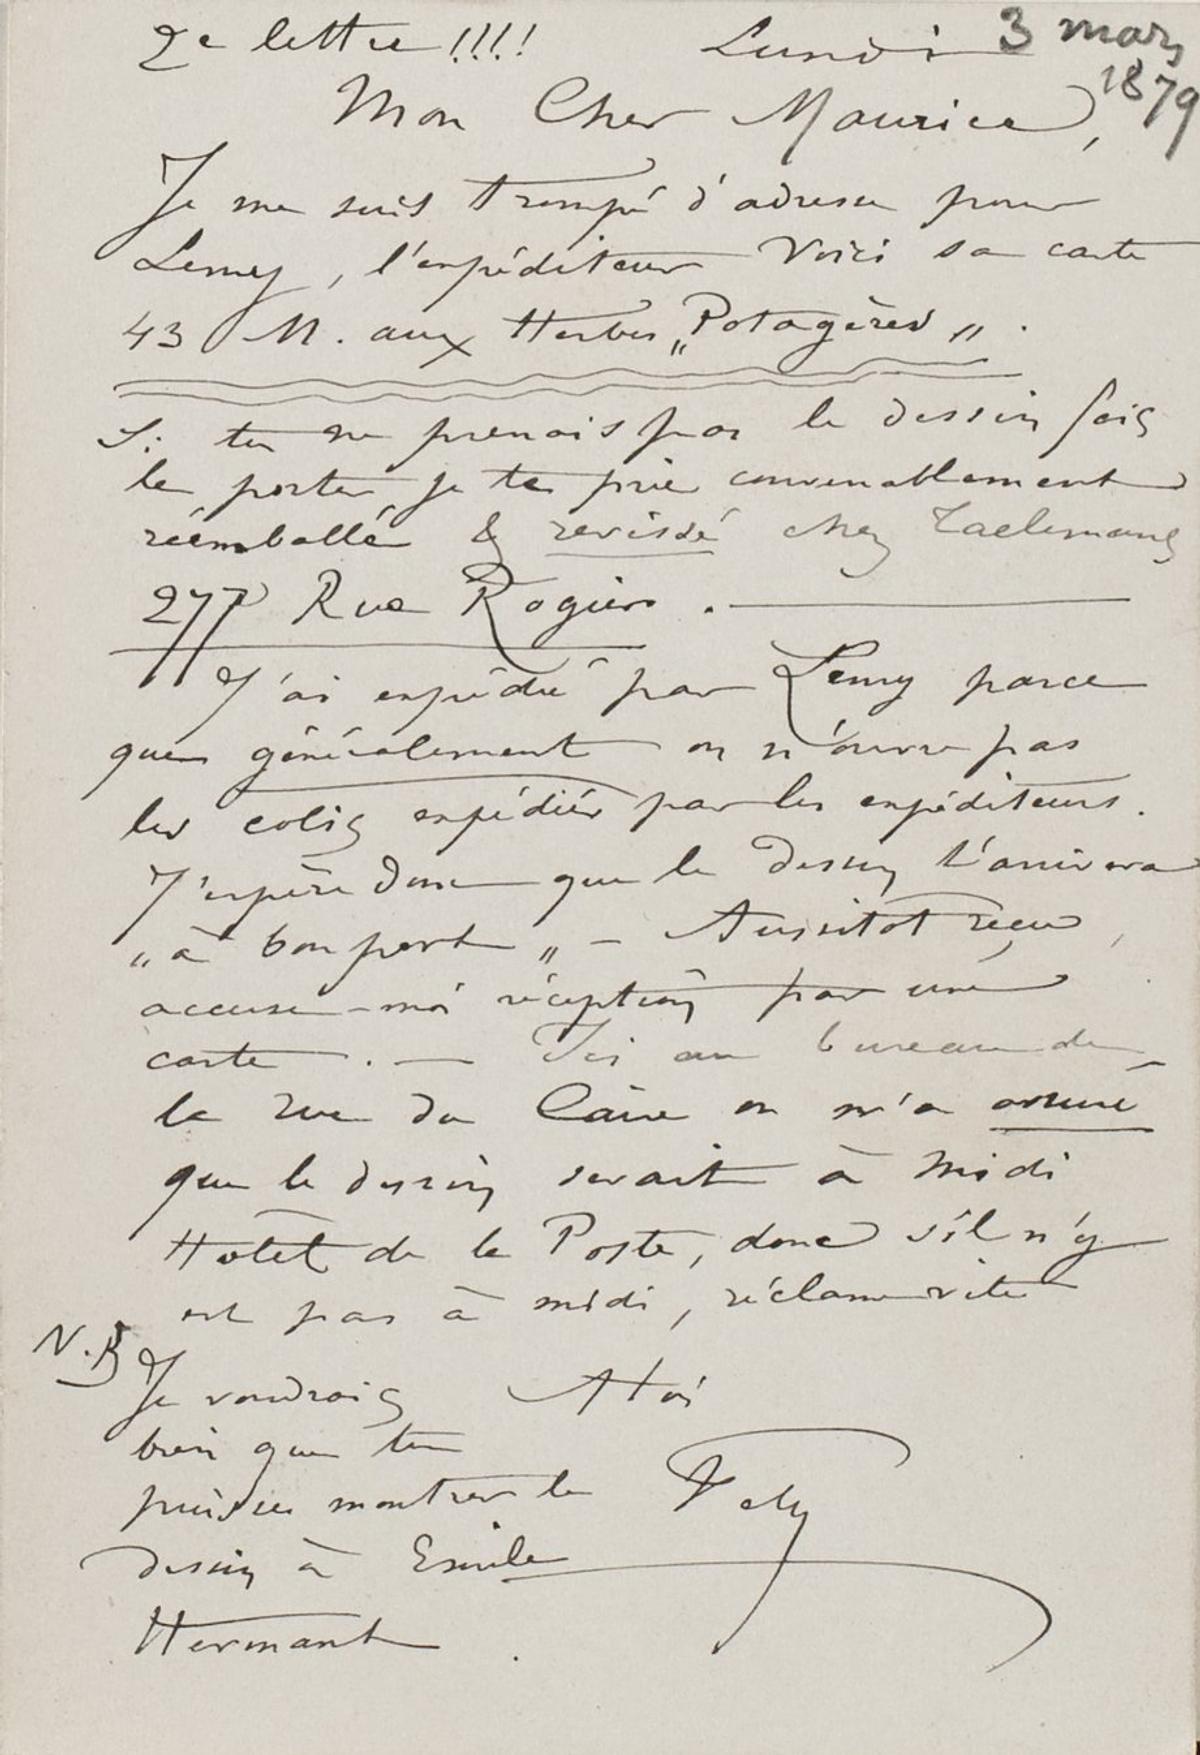 2e lettre !!!! Lundi 3 mars
1879
Mon Cher Maurice,
Je me suis trompé d'adresse pour
Lemy, l'expéditeur Voici sa carte
43 M. aux Herbes „Potagères„.
Si tu ne prenais pas le dessin fais
le porter je te prie convenablement
réemballé & revissé chez Taelemans
277 Rue Rogier.
J'ai expédié par Lemy parce
que généralement on n'ouvre pas
les colis expédiés par les expéditeurs.
J'espère donc que le dessin t'arrivera
„à bon port„ – Aussitot reçu,
accuse-moi réception par une
carte. — Ici au bureau de
la rue du Caire on m'a assuré
que le dessin serait à midi
Hôtel de la Poste, donc s'il n'y
est pas à midi, réclame vite
N.B Je voudrais A toi
bien que tu
puisses montrer le Fely
dessin à Emile
Hermant.